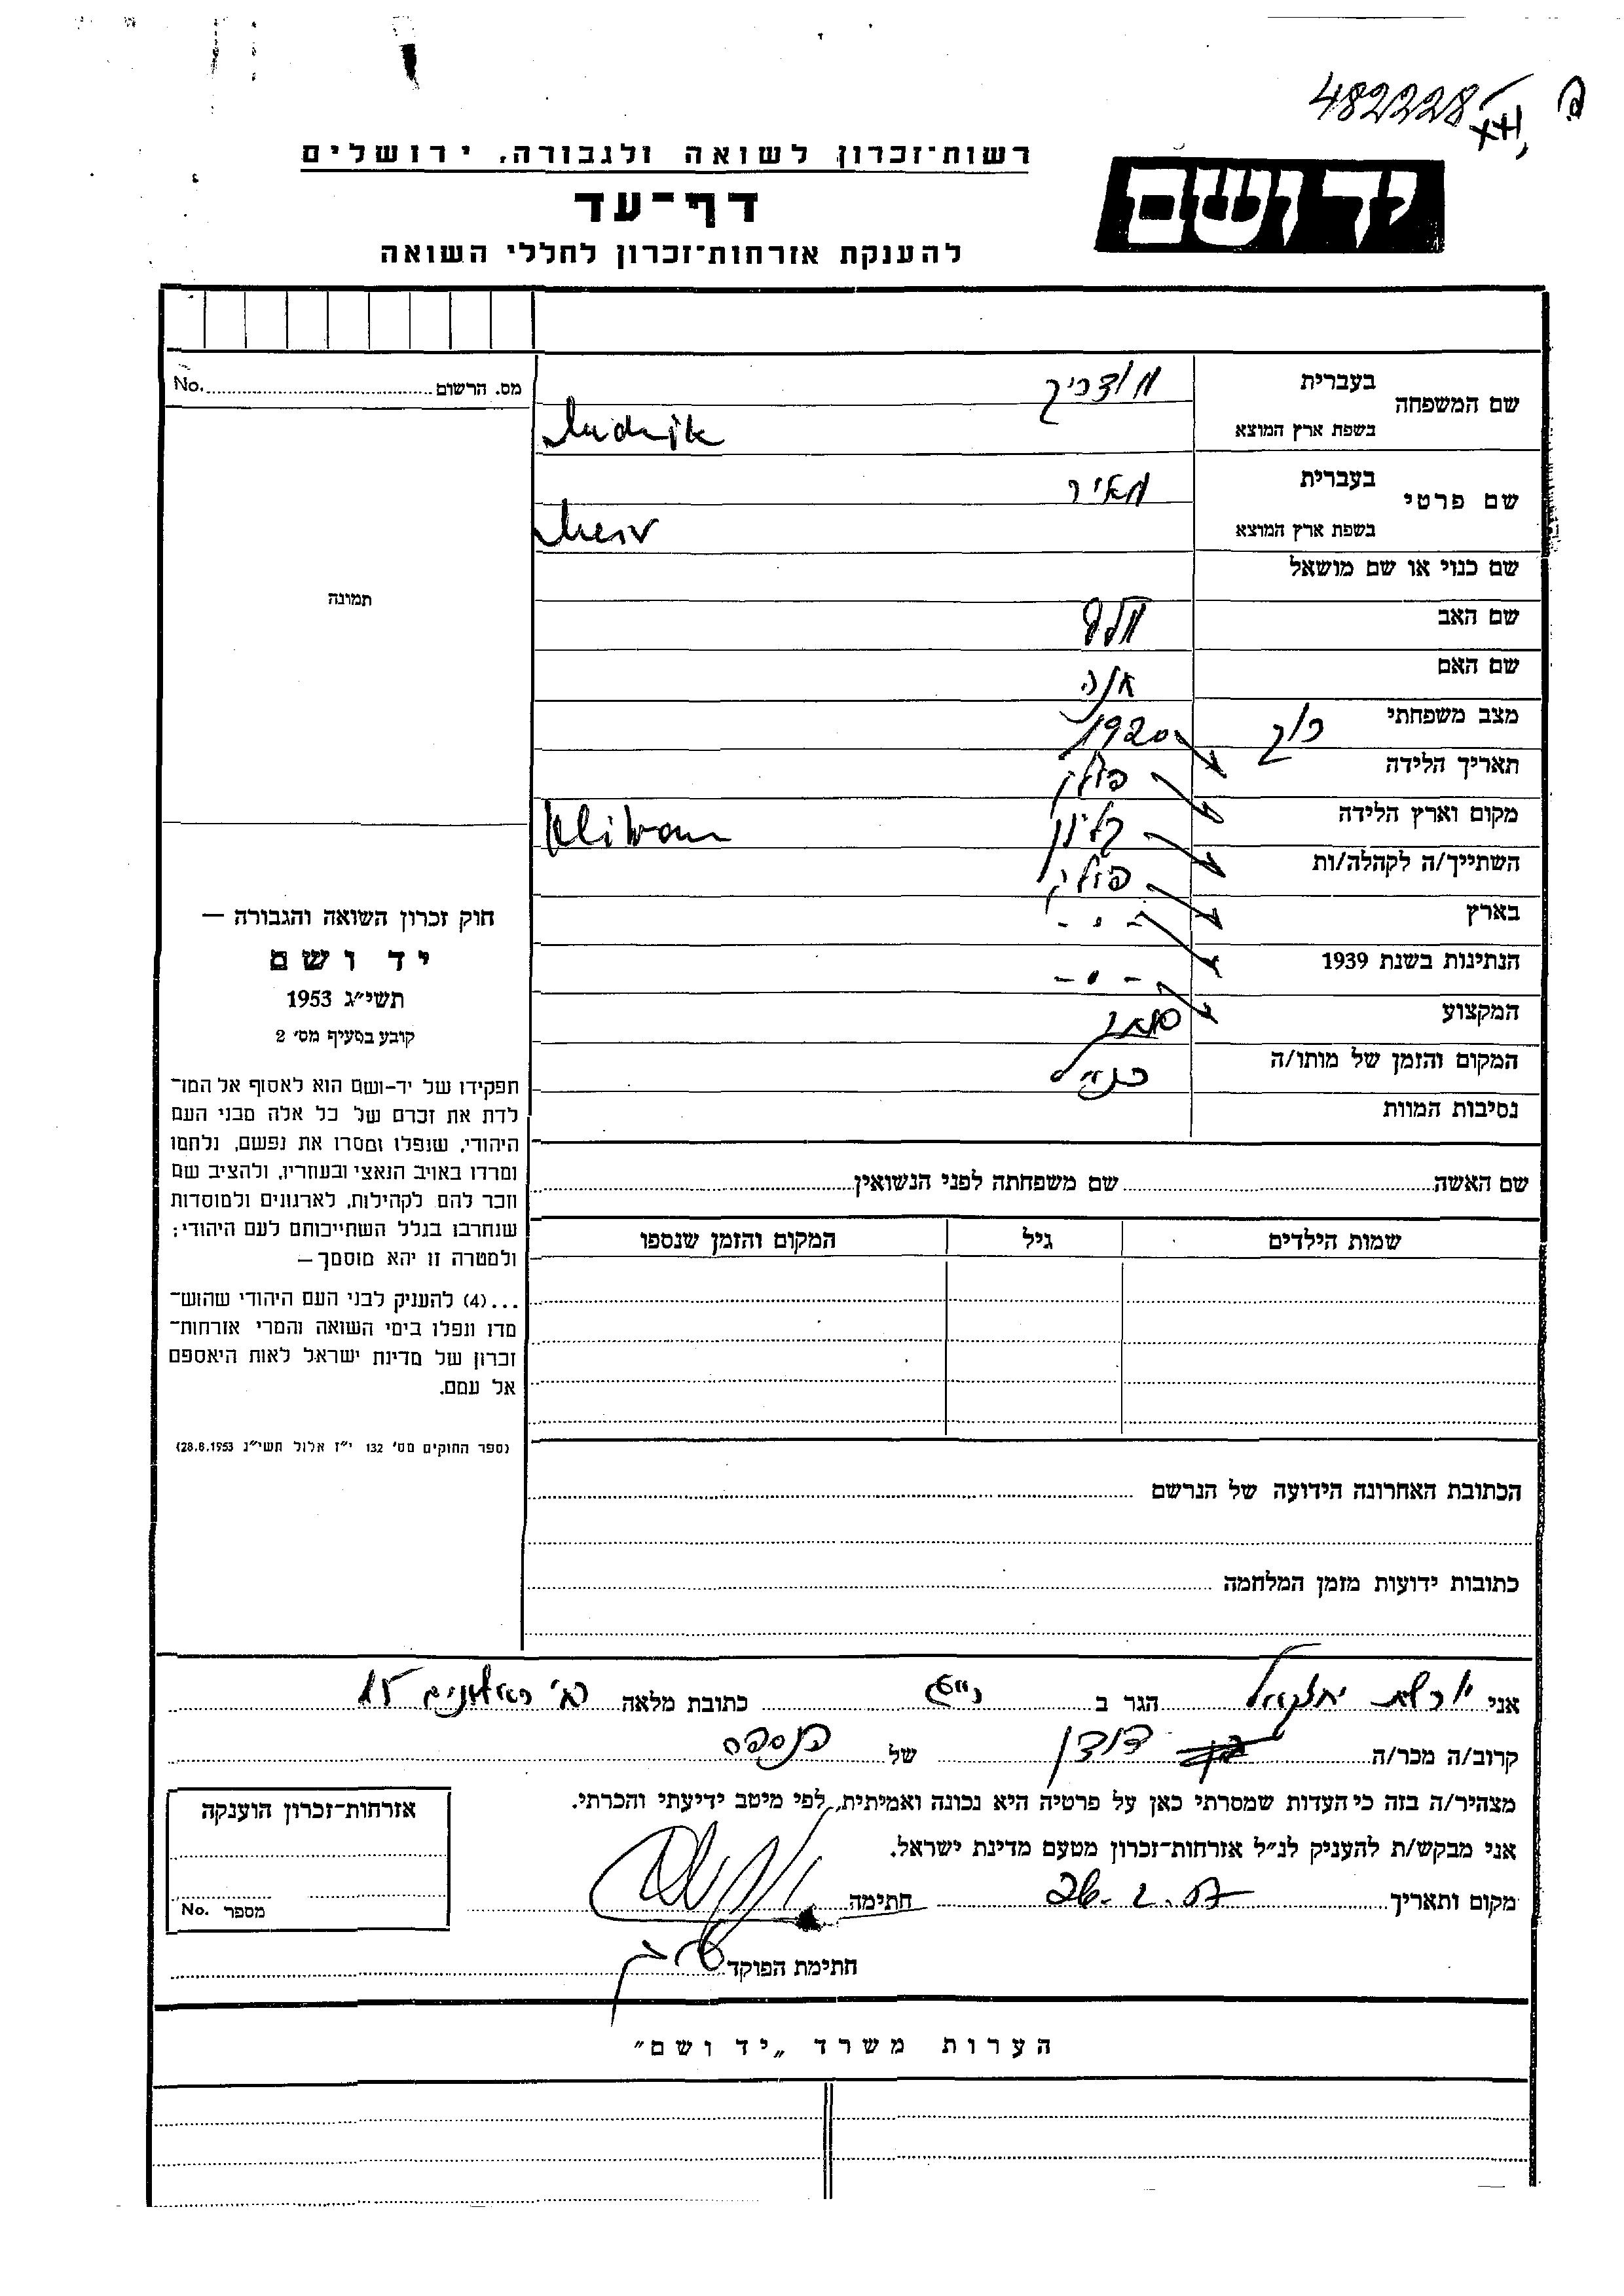 482228
יד ושם
רשות־זכרון לשואה ולגבורה, ירושלים
דף־עד
להענקת אזרחות־זכרון לחללי השואה
שם המשפחה
בעברית
בשפת ארץ המוצא
שם פרטי
בעברית מאיר
בשפת ארץ המוצא Meir
שם כנוי או שם מושאל
שם האב
שם האם
מצב משפחתי
תאריך הלידה 1920
מקום וארץ הלידה פולין
השתייך/ה לקהלה/ות
בארץ פולין
הנתינות בשנת 1939 - " -
המקצוע - " -
המקום והזמן של מותו/ה
נסיבות המוות
שם האשה
שם משפחתה לפני הנשואין
שמות הילדים
גיל
המקום והזמן שנספו
הכתובת האחרונה הידועה של הנרשם
כתובות ידועות מזמן המלחמה
מס. הרשום No.
תמונה
חוק זכרון השואה והגבורה —
יד ושם
תשי״ג 1953
קובע בסעיף מס׳ 2
תפקידו של יד-ושם הוא לאסוף אל המו־
לדת את זכרם של כל אלה מבני העם
היהודי, שנפלו ומסרו את נפשם, נלחמו
ומרדו באויב הנאצי ובעוזריו, ולהציב שם
וזכר להם לקהילות, לארגונים ולמוסדות
שנחרבו בגלל השתייכותם לעם היהודי;
ולמטרה זו יהא מוסמך—
...(4) להעניק לבני העם היהודי שהוש־
מדו ונפלו בימי השואה והמרי אזרחות־
זכרון של מדינת ישראל לאות היאספם
אל עמם.
(ספר החוקים מס׳ 132 י״ז אלול תשי״ג 28.8.1953)
אני יחזקאל הגר ב כתובת מלאה 15
קרוב/ה מכר/ה דודן של הנספה
מצהיר/ה בזה כי העדות שמסרתי כאן על פרטיה היא נכונה ואמיתית, לפי מיטב ידיעתי והכרתי.
אני מבקש/ת להעניק לנ״ל אזרחות־זכרון מטעם מדינת ישראל.
מקום ותאריך חתימה
חתימת הפוקד
אזרחות־זכרון הוענקה
מספר No.
הערות משרד „יד ושם״